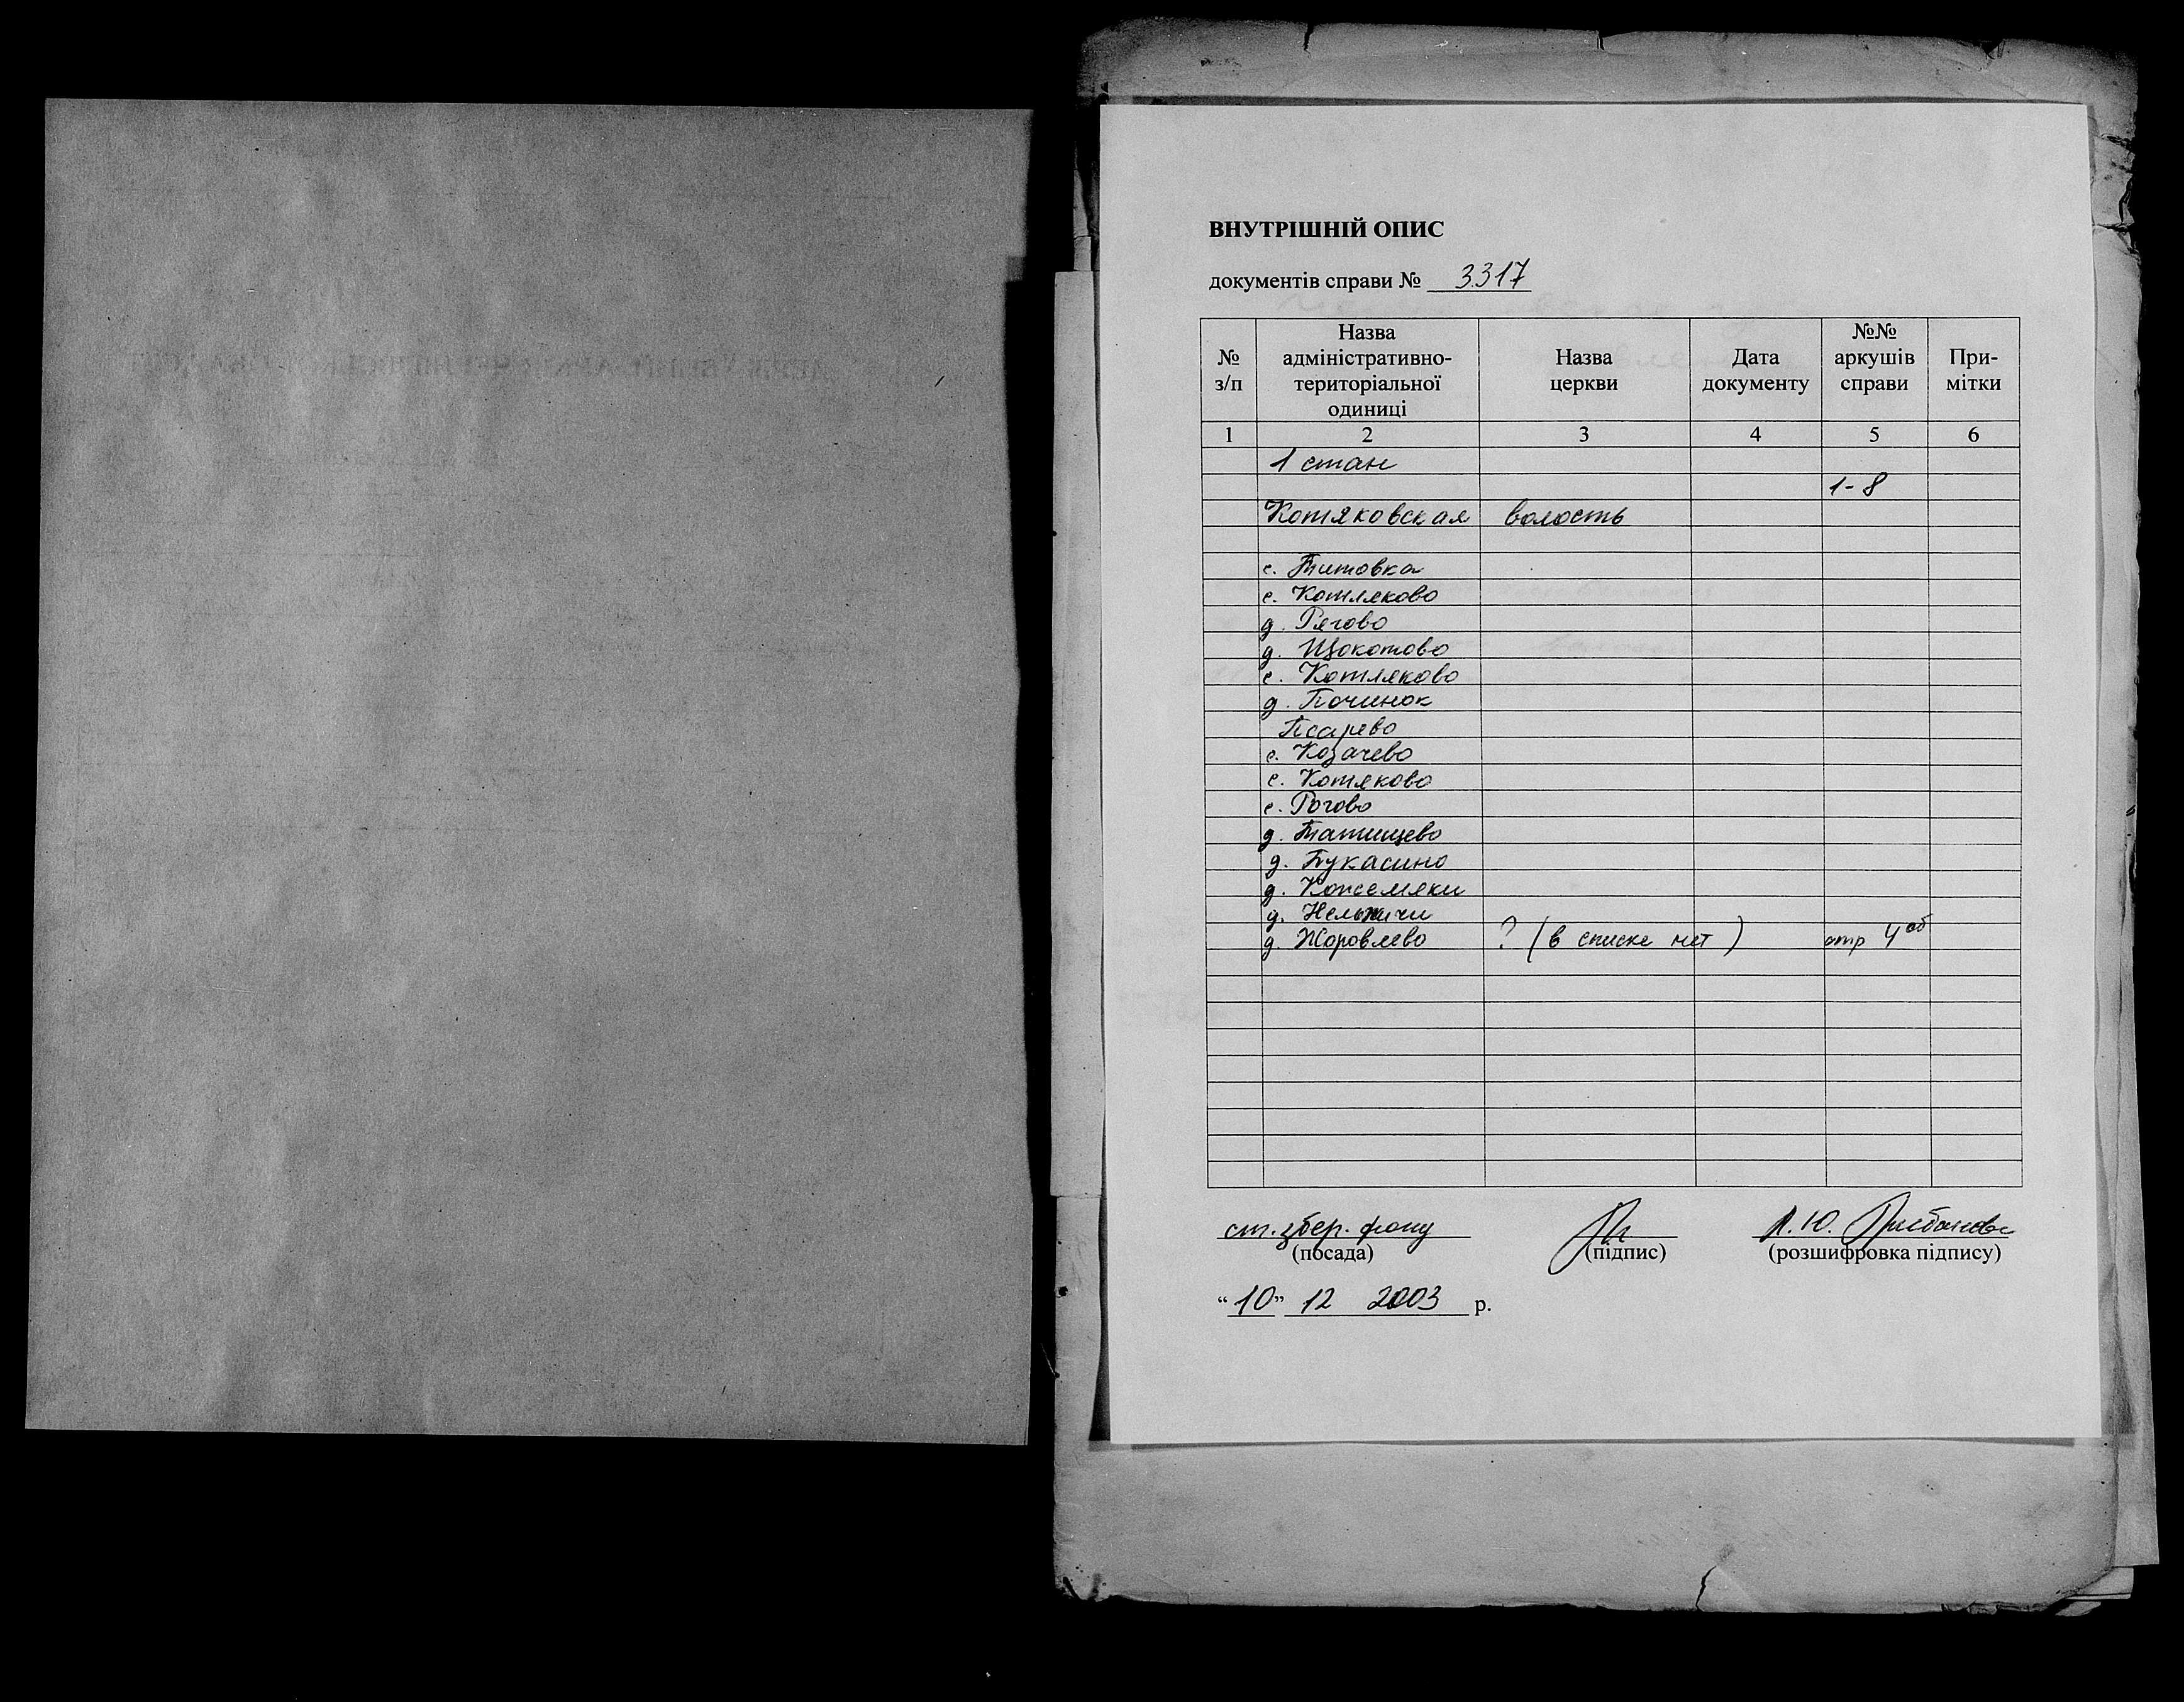 ВНУТРІШНІЙ ОПИС
документів справи № 3317
№ з/п
Назва адміністративно-територіальної одиниці
Назва церкви
Дата документу
№№ аркушів справи
При-мітки
1 2 3 4 5 6
1 стан
1-8
Котяковская волость
с. Титовка
с. Котляково
д. Рягово
д. Щокотово
с. Котляково
д. Починок
Псарево
с. Козачево
с. Котяково
с. Рогово
д. Татищево
д. Букасино
д. Кожемяки
д. Нельжичи
д. Жоровлево ? (в списке нет) стр 4 об
ст. збер. фонду
(посада) (підпис) (розшифровка підпису)
Л.Ю.
“10” 12 2003 р.